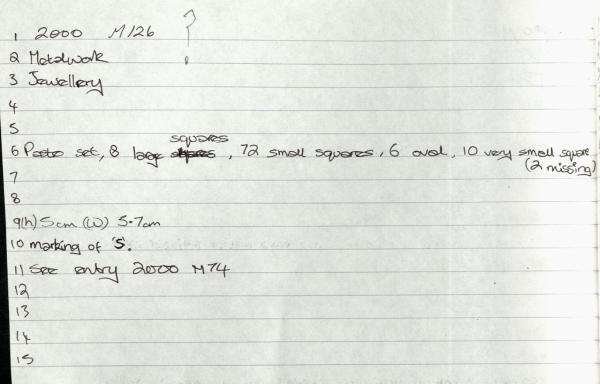 1 2000 M126 ?
2 Metalwork
3 Jewellery
4
5
squares
6 Paste set, 8 large shapes, 72 small squares, 6 oval, 10 very small square
(2 missing)
7
8
9(h) 5cm (w) 5.7cm
10 marking of 'S'.
11 See entry 2000 M74
12
13
14
15